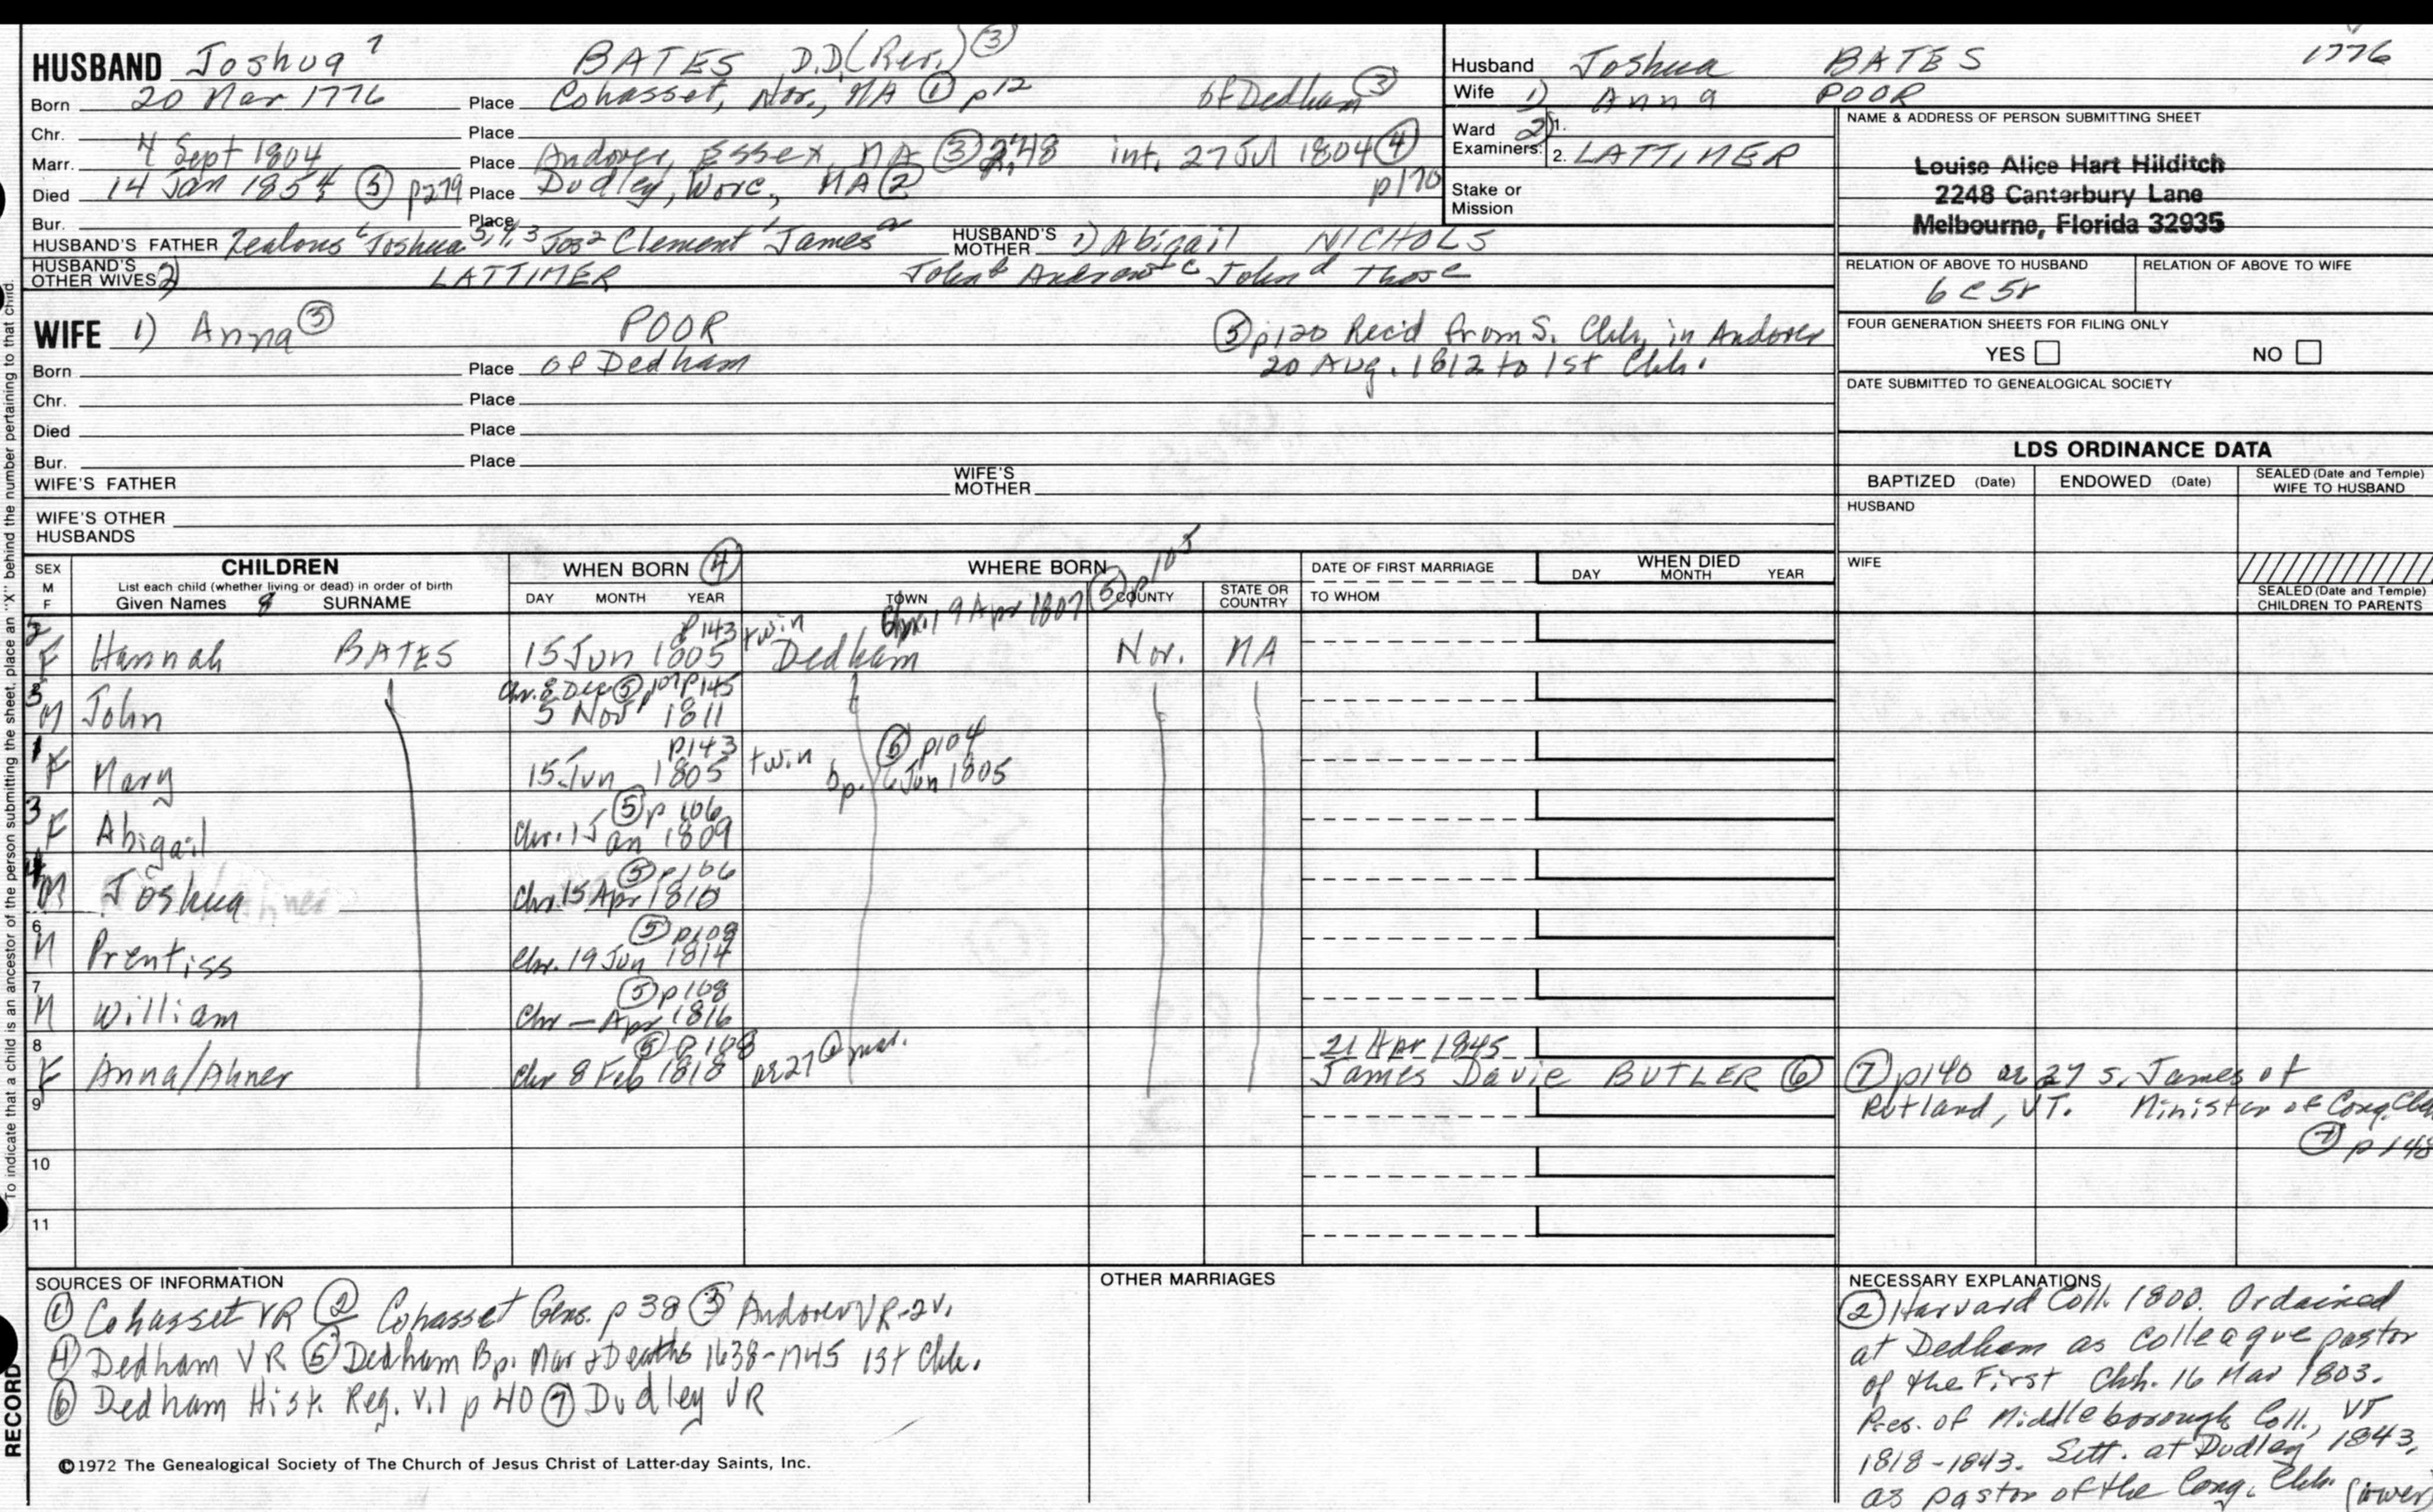 HUSBAND Joshua 7 BATES D.D. (Rev.) ③
Born 20 Mar 1776 Place Cohasset, Nor., MA ① p12 of Dedham ③
Chr. Place
Marr. 4 Sept 1804 Place Andover, Essex, MA ③ 2:48 int. 27 Jul 1804 ④ p170
Died 14 Jan 1854 ⑤ p279 Place Dudley, Worc., MA ②
Bur. Place
HUSBAND'S FATHER Zealous 6 Joshua 5,4,3 Jos 2 Clement 1 James a HUSBAND'S MOTHER 1) Abigail NICHOLS
HUSBAND'S OTHER WIVES 2) LATTIMER John b Andrew c John d Thos e
Husband Joshua BATES 1776
Wife 1) Anna POOR
Ward Examiners: 1. 2)
2. LATTIMER
Stake or Mission
NAME & ADDRESS OF PERSON SUBMITTING SHEET
Louise Alice Hart Hilditch
2248 Canterbury Lane
Melbourne, Florida 32935
RELATION OF ABOVE TO HUSBAND RELATION OF ABOVE TO WIFE
6 c 5r
WIFE 1) Anna ③ POOR
⑤ p120 Rec'd from S. Chh. in Andover
20 Aug. 1812 to 1st Chh.
Born Place of Dedham
Chr. Place
Died Place
Bur. Place
WIFE'S FATHER WIFE'S MOTHER
WIFE'S OTHER HUSBANDS
FOUR GENERATION SHEETS FOR FILING ONLY
YES NO
DATE SUBMITTED TO GENEALOGICAL SOCIETY
LDS ORDINANCE DATA
BAPTIZED (Date) ENDOWED (Date) SEALED (Date and Temple) WIFE TO HUSBAND
HUSBAND
WIFE
SEALED (Date and Temple) CHILDREN TO PARENTS
To indicate that a child is an ancestor of the person submitting the sheet, place an "X" behind the number pertaining to that child.
SEX M F CHILDREN WHEN BORN ④ WHERE BORN DATE OF FIRST MARRIAGE WHEN DIED
List each child (whether living or dead) in order of birth
Given Names 8 SURNAME DAY MONTH YEAR TOWN COUNTY STATE OR COUNTRY TO WHOM DAY MONTH YEAR
9 Apr 1807 ⑤ p105
2 F Hannah BATES p143 15 Jun 1805 twin Dedham Nor. MA
5 M John Chr. 8 Dec ⑤ p107 p145 5 Nov 1811
1 F Mary p143 15 Jun 1805 twin ⑤ p104 bp. 16 Jun 1805
3 F Abigail ⑤ p106 Chr. 1 Jan 1809
4 M Joshua ⑤ p106 Chr. 15 Apr 1810
6 M Prentiss ⑤ p108 Chr. 19 Jun 1814
7 M William ⑤ p108 Chr — Apr 1816
8 F Anna/Abner ⑤ p108 Chr 8 Feb 1818 ae 27 @ mar. 21 Apr 1845 James Davie BUTLER ⑥
⑦ p140 ae 27 s. James of
Rutland, VT. Minister of Cong. Chh
⑦ p148
9
10
11
SOURCES OF INFORMATION
① Cohasset VR ② Cohasset Gens. p 38 ③ Andover VR-2v.
④ Dedham VR ⑤ Dedham Bp. Mar & Deaths 1638-1845 1st Chh.
⑥ Dedham Hist. Reg. v.1 p 40 ⑦ Dudley VR
©1972 The Genealogical Society of The Church of Jesus Christ of Latter-day Saints, Inc.
RECORD
OTHER MARRIAGES
NECESSARY EXPLANATIONS
② Harvard Coll. 1800. Ordained
at Dedham as colleague pastor
of the First Chh. 16 Mar 1803.
Pres. of Middleborough Coll., VT
1818-1843. Sett. at Dudley 1843,
as pastor of the Cong. Chh. (over)